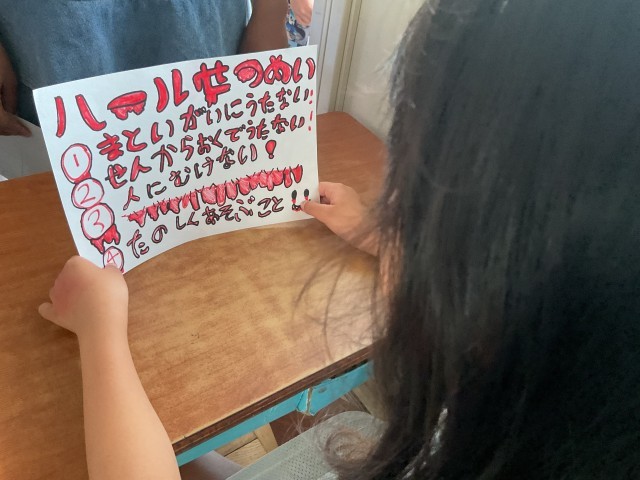 ルールせつめい
① まといがいにうたない!
② せんからおくでうたない!
③ 人にむけない!
④ たのしくあそぶこと!!